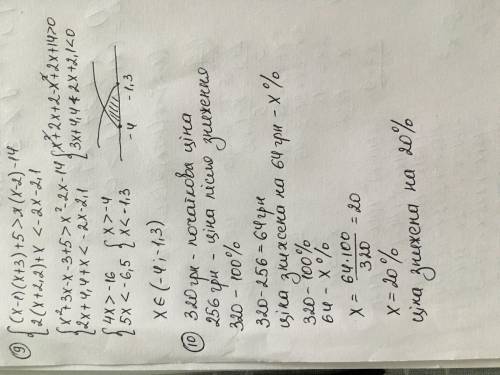 ⑨ {(x-1)(x+3)+5>x(x-2)-14
2(x+2,2)+x<-2x-2,1
{x²+3x-x-3+5>x²-2x-14 {x²+2x+2-x²+2x+14>0
2x+4,4+x<-2x-2,1 3x+4,4+2x+2,1<0
{4x>-16 {x>-4
5x<-6,5 x<-1,3
-4 -1,3
x∈(-4;-1,3)
⑩ 320 грн - початкова ціна
256 грн - ціна після зниження
320 - 100%
320-256=64 грн
ціна знижена на 64 грн - x%
320 - 100%
64 - x%
x = 64·100/320 = 20
x = 20%
ціна знижена на 20%